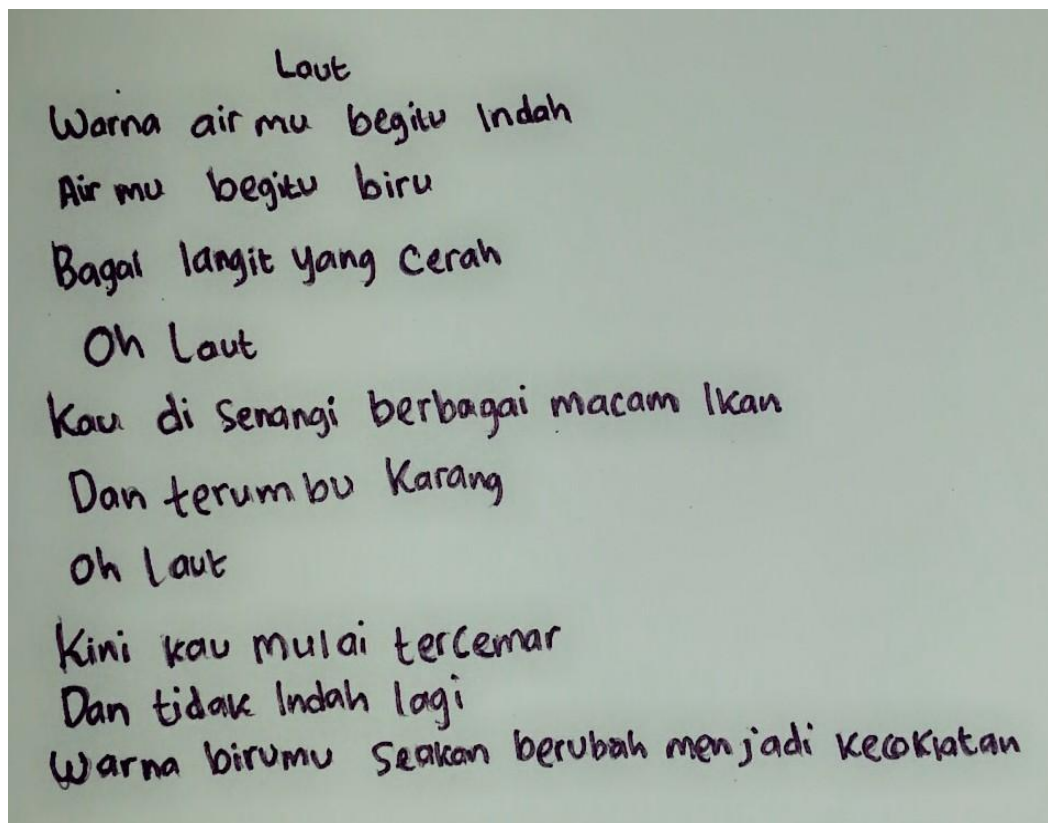 Laut
Warna air mu begitu Indah
Air mu begitu biru
Bagai langit yang Cerah
Oh Laut
Kau di Senangi berbagai macam Ikan
Dan terumbu Karang
Oh Laut
Kini kau mulai tercemar
Dan tidak Indah lagi
Warna birumu Seakan berubah menjadi Kecokiatan